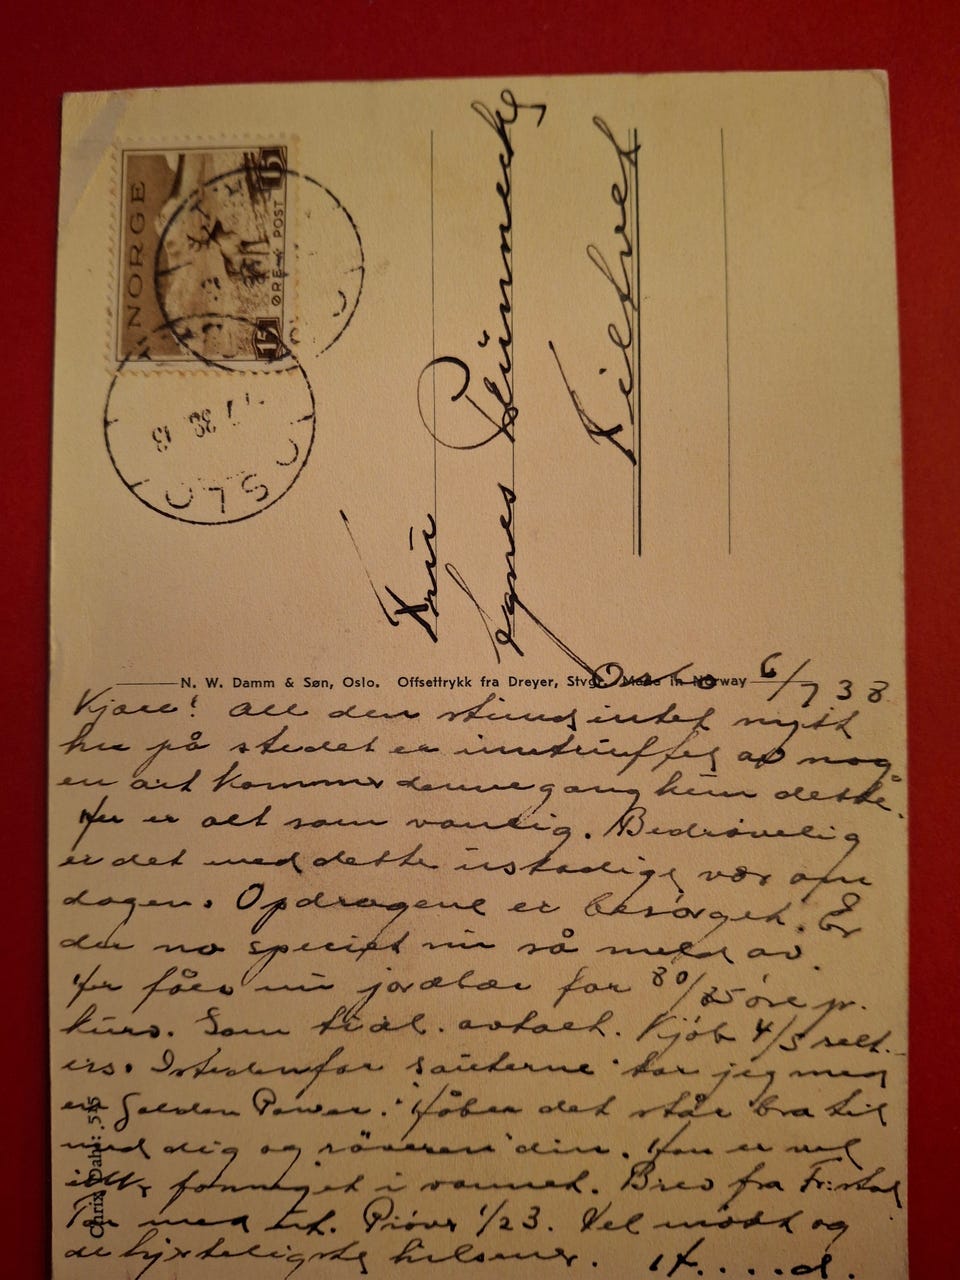 NORGE
15 ØRE POST 15
OSLO
7 38 13
Frü
Agnes Plünnecke
Tilbret
N. W. Damm & Søn, Oslo. Offsettrykk fra Dreyer, Stvgr. Made in Norway
Oslo 6/7 38
Kjære! All den stund intet nytt
her på stedet er inntruffet av nog-
en art kommer dennegang kun dette.
Her er alt som vanlig. Bedrøvelig
er det med dette ustadige vær om
dagen. Opdragene er besörget. Er
der no specielt nu så meld av.
Her fåes nu jordbær for 80/85 øre pr.
kurv. Som tidl. avtalt. Kjøb 4/5
Istedenfor tar jeg med
en Golden Power. Håber det står bra til
med dig og röveren din. Han er vel
ikke fornøiet i vannet. Brev fra
med int. Prøve 1/23. Vel mødt og
de hjerteligste hilsener. H....d.
Chrix Dahl: 515